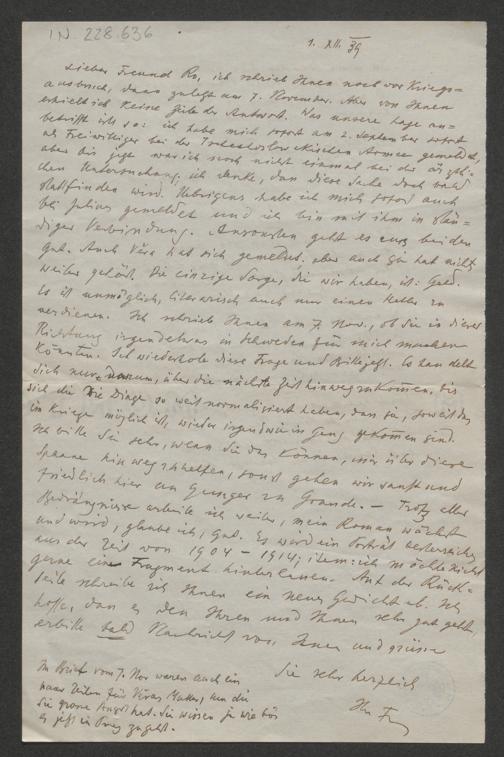 IN. 228.636
1. XII. 39
Lieber Freund Ro, ich schrieb Ihnen noch vor Kriegs=
ausbruch, dann zuletzt am 7. November. Aber von Ihnen
erhielt ich keine Zeile der Antwort. Was unsere Lage an=
betrifft ists so: ich habe mich sofort am 2. September sofort
als Freiwilliger bei der Tschechoslowakischen Armee gemeldet,
aber bis jetzt war ich noch nicht einmal bei der ärztli=
chen Untersuchung, ich denke, dass diese Sache doch bald
stattfinden wird. Übrigens habe ich mich sofort auch
bei Julius gemeldet und ich bin mit ihm in stän=
diger Verbindung. Ansonsten geht es uns beiden
gut. Auch Véra hat sich gemeldet, aber auch sie hat nichts
weiter gehört. Die einzige Sorge, die wir haben, ist: Geld.
Es ist unmöglich, literarisch auch nur einen Heller zu
verdienen. Ich schrieb Ihnen am 7. Nov., ob Sie in dieser
Richtung irgendetwas in Schweden für mich machen
könnten. Ich wiederhole diese Frage und Bitte jetzt. Es handelt
sich nur darum, über die nächste Zeit hinwegzukommen, bis
sich die Dinge so weit normalisiert haben, dass sie, soweit das
im Kriege möglich ist, wieder irgendwie in Gang gekommen sind.
Ich bitte Sie sehr, wenn Sie das können, mir über diese
Spanne hinwegzuhelfen, sonst gehen wir sanft und
friedlich hier am Hunger zu Grunde. — Trotz aller
Bedrängnisse arbeite ich weiter, mein Roman wächst
und wird, glaube ich, gut. Es wird ein Porträt Österreichs
aus der Zeit von 1904 – 1914; ich möchte nicht
gerne ein Fragment hinterlassen. Auf der Rück=
seite schreibe ich Ihnen ein neues Gedicht ab. Ich
hoffe, dass es den Ihren und Ihnen sehr gut geht,
erbitte bald Nachricht von Ihnen und grüsse
Sie sehr herzlich
Ihr
Im Brief vom 7. Nov waren auch ein
paar Zeilen für Véras Mutter, um die
sie grosse Angst hat. Sie wissen ja wie bös
es jetzt in Prag zugeht.